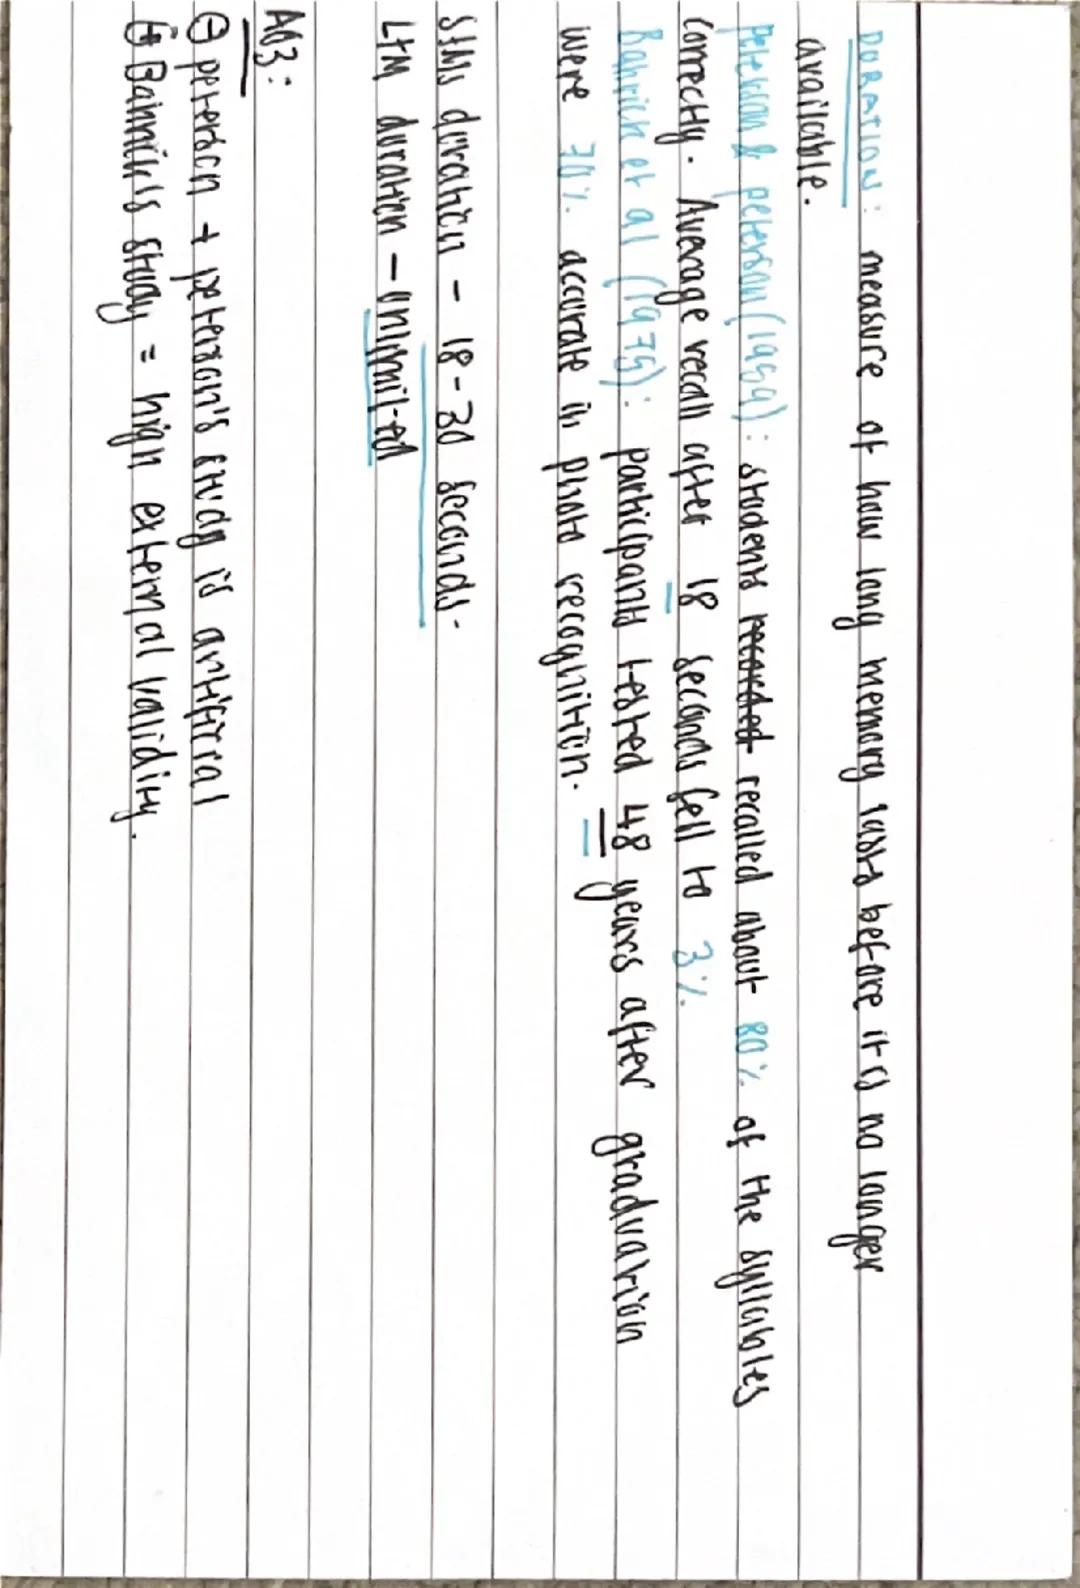 DURATION: measure of how long memory lasts before it is no longer
available.
Peterson & peterson (1959): students recorded recalled about 80% of the syllables
correctly. Average recall after 18 seconds fell to 3%.
Bahrick et al (1975): participants tested 48 years after graduation
were 70% accurate in photo recognition.
STMs duration - 18-30 seconds.
LTM duration - unlimited
A03:
⊖ peterson + peterson's study is artificial
⊕ Bahrick's study = high external validity.